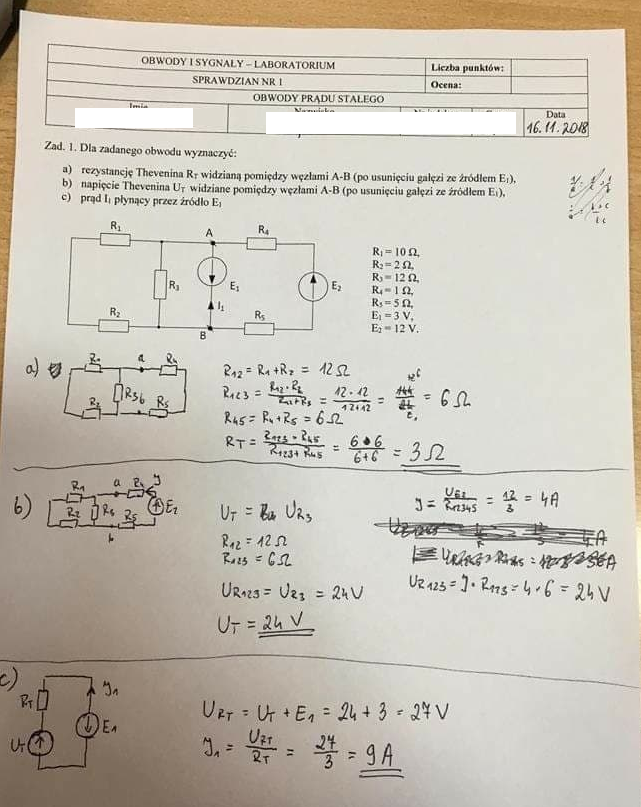 OBWODY I SYGNAŁY – LABORATORIUM
Liczba punktów:
SPRAWDZIAN NR 1
Ocena:
OBWODY PRĄDU STAŁEGO
Data
16.11.2018
Zad. 1. Dla zadanego obwodu wyznaczyć:
a) rezystancję Thevenina RT widzianą pomiędzy węzłami A-B (po usunięciu gałęzi ze źródłem E1),
b) napięcie Thevenina UT widziane pomiędzy węzłami A-B (po usunięciu gałęzi ze źródłem E1),
c) prąd I1 płynący przez źródło E1
R1 A R4
R3 E1 E2
I1
R2 B R5
R1 = 10 Ω,
R2 = 2 Ω,
R3 = 12 Ω,
R4 = 1 Ω,
R5 = 5 Ω,
E1 = 3 V,
E2 = 12 V.
a)
a R4
R3 b R5
R2
R12 = R1 + R2 = 12 Ω
R123 = R12 · R3 / R12 + R3 = 12 · 12 / 12 + 12 = = 6 Ω
R45 = R4 + R5 = 6 Ω
RT = R123 · R45 / R123 + R45 = 6 · 6 / 6 + 6 = 3 Ω
b)
R1 a R4 J
R2 R5 E2
b
UT = UR3
R12 = 12 Ω
R123 = 6 Ω
UR123 = UR3 = 24 V
UT = 24 V
J = UE2 / R12345 = 12 / 3 = 4 A
UR123 = J · R123 = 4 · 6 = 24 V
c)
RT J1
UT E1
URT = UT + E1 = 24 + 3 = 27 V
J1 = URT / RT = 27 / 3 = 9 A